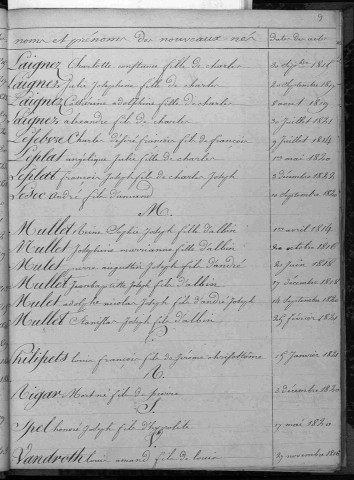 9
noms et prénoms des nouveaux nés date des acte
Laignez Charlotte constance fille de charle 20 7bre 1816
Laignez Julie Josephine fille de charle 20 Septembre 1817
Laignez Catherine adolphine fille de charle 8 aout 1819
Laignez alexandre fils de charle 30 Juillet 1821
Lefebvre Charle désiré françois fils de françois 9 Juillet 1814
Leplat angélique Julie fille de charle 1er mai 1820
Leplat françois Joseph fils de charle Joseph 3 décembre 1822
Lesec andré fils d'amand Septembre 1820
M.
Mullet Sophie Joseph fille d'albin 1er avril 1814
Mullet Josephine marianne fille d'albin 20 octobre 1816
Mulet pierre augustin Joseph fils d'andré 2 Juin 1818
Mullet Jean baptiste Joseph fils d'albin 17 décembre 1818
Mulet adolphe nicolas Joseph fils d'andré Joseph 14 Septembre 1820
Mullet Stanislas Joseph fils d'albin 25 février 1821
Philipets louis françois fils de Jérome 15 Janvier 1821
Rigar Mort né fils de pierre 3 décembre 1820
S.
Spel honoré Joseph fils d'hippolite 17 mai 1820
V
Vandroth louis amand fils de louis 29 novembre 1816